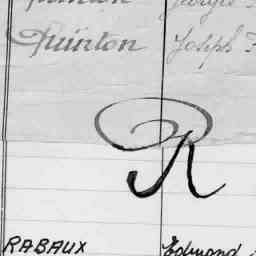 Quinton Joseph
R
RABAUX Edmond